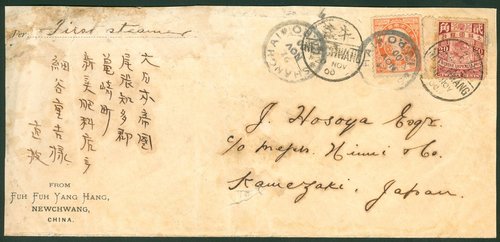 Per First steamer
大日本帝國
尾張知多郡
亀崎町
新美肥料店方
細谷重吉様
直披
J. Hosoya Esqr.
c/o Messrs Niimi & Co.
Kamezaki, Japan.
FROM
FUH FUH YANG HANG,
NEWCHWANG,
CHINA.
SHANGHAI
NOV
NEWCHWANG
NOV
00